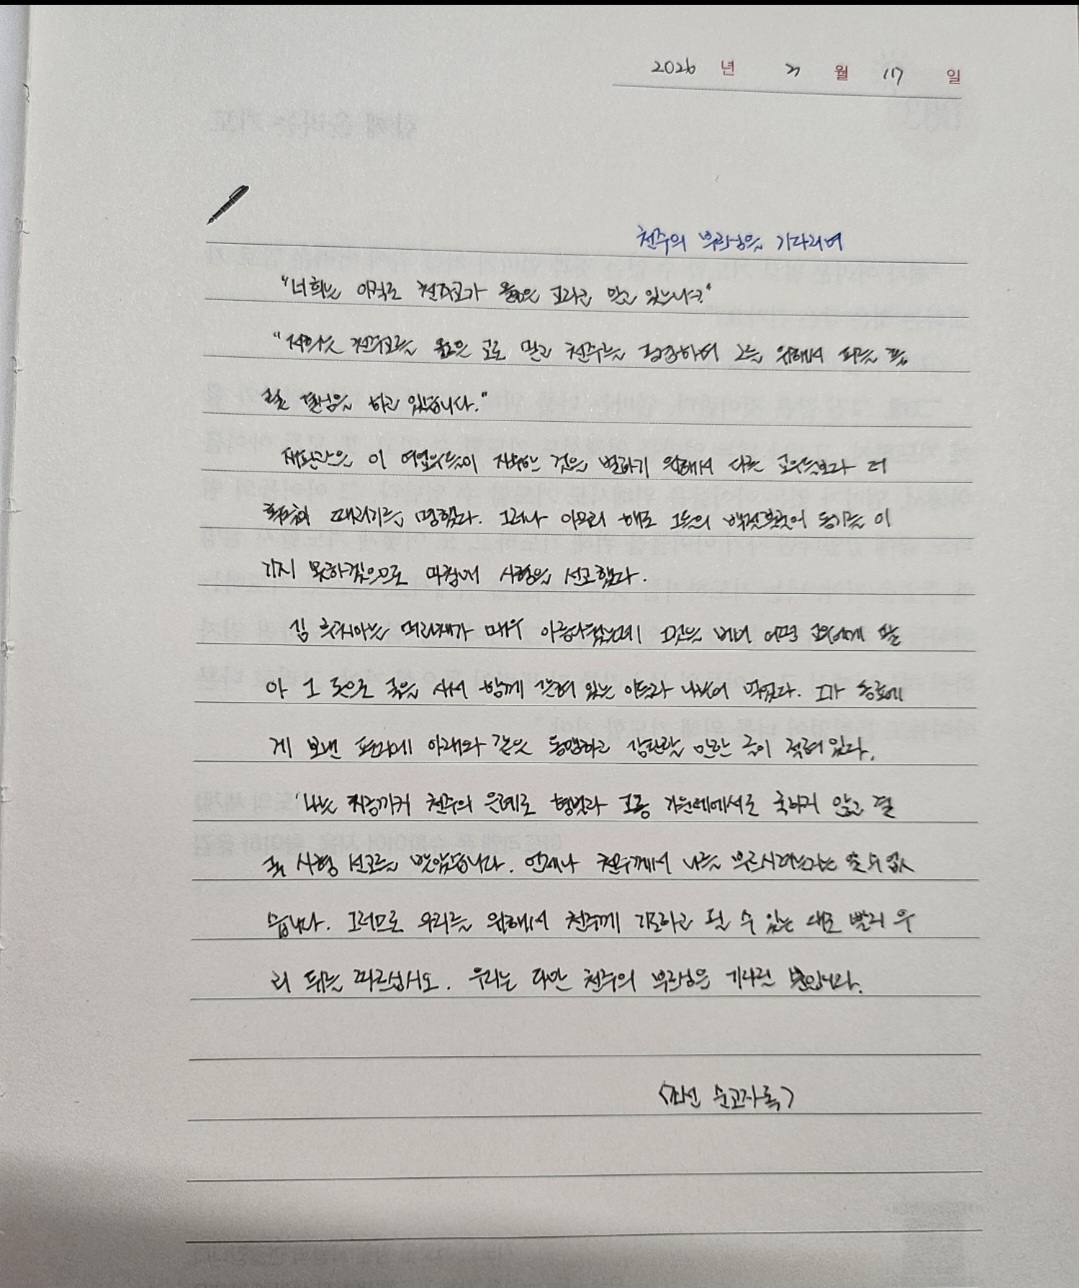 2026 년 2 월 17 일
천주의 부르심을 기다리며
"너희는 아직도 천주교가 옳은 교라고 믿고 있느냐?"
"저희는 천주교를 옳은 교로 믿고 천주를 공경하며 그를 위해서 죽을
결심을 하고 있습니다."
재판관은 이 여교우들이 자백한 것을 벌하기 위해서 다른 교우들보다 더
혹독히 때리기를 명했다. 그러나 아무리 해도 그들의 용기를 이
기지 못하겠으므로 마침내 사형을 선고했다.
김 루치아는 머리채가 매우 아름다웠는데 그것을 베어 어떤 교우에게 팔
아 그 돈으로 죽을 사서 함께 갇혀 있는 이들과 나누어 먹었다. 그가
게 보낸 편지에 아래와 같은 동명하고 감탄할 만한 글이 적혀 있다.
'나는 지금까지 천주의 은혜로 형벌과 고통 가운데에서도 죽지 않고 결
국 사형 선고를 받았습니다. 언제나 천주께서 나를 부르시려는지는 알 수 없
습니다. 그러므로 우리를 위해서 천주께 기도하고 될 수 있는 대로 빨리 우
리 뒤를 따르십시오. 우리는 다만 천주의 부르심을 기다릴 뿐입니다.
<조선 순교자록>